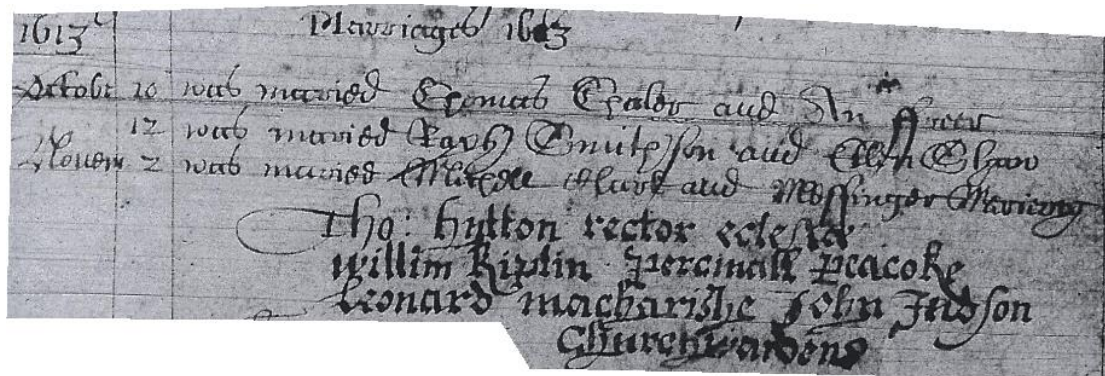 1613 Marriages 1613
Octobr 10 was maried Thomas Thaler and An ffreer
12 was maried Raph Smithson and Ellyn Shaw
Novem 2 was maried Clark and Messinger
Tho: hutton rector eclesia
Willim Kiplin Percivall Peacoke
Leonard macharishe John Judson
Churchwardens